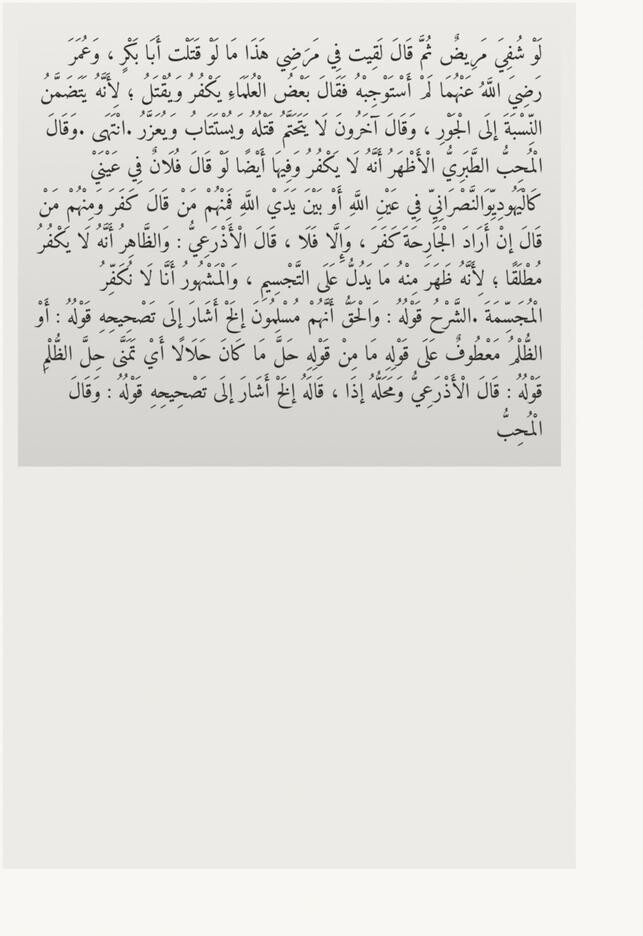 لَوْ شُفِيَ مَرِيضٌ ثُمَّ قَالَ لَقِيت فِي مَرَضِي هَذَا مَا لَوْ قَتَلْت أَبَا بَكْرٍ ، وَعُمَرَ
رَضِيَ اللَّهُ عَنْهُمَا لَمْ أَسْتَوْجِبْهُ فَقَالَ بَعْضُ الْعُلَمَاءِ يَكْفُرُ وَيُقْتَلُ ؛ لِأَنَّهُ يَتَضَمَّنُ
النِّسْبَةَ إلَى الْجَوْرِ ، وَقَالَ آخَرُونَ لَا يَتَحَتَّمُ قَتْلُهُ وَيُسْتَتَابُ وَيُعَزَّرُ .انْتَهَى .وَقَالَ
الْمُحِبُّ الطَّبَرِيُّ الْأَظْهَرُ أَنَّهُ لَا يَكْفُرُ وَفِيهَا أَيْضًا لَوْ قَالَ فُلَانٌ فِي عَيْنَيْ
كَالْيَهُودِيِّوَالنَّصْرَانِيِّ فِي عَيْنِ اللَّهِ أَوْ بَيْنَ يَدَيْ اللَّهِ فَمِنْهُمْ مَنْ قَالَ كَفَرَ وَمِنْهُمْ مَنْ
قَالَ إنْ أَرَادَ الْجَارِحَةَ كَفَرَ ، وَإِلَّا فَلَا ، قَالَ الْأَذْرَعِيُّ : وَالظَّاهِرُ أَنَّهُ لَا يَكْفُرُ
مُطْلَقًا ؛ لِأَنَّهُ ظَهَرَ مِنْهُ مَا يَدُلُّ عَلَى التَّجْسِيمِ ، وَالْمَشْهُورُ أَنَّا لَا نُكَفِّرُ
الْمُجَسِّمَةَ .الشَّرْحُ قَوْلُهُ : وَالْحَقُّ أَنَّهُمْ مُسْلِمُونَ إلَخْ أَشَارَ إلَى تَصْحِيحِهِ قَوْلُهُ : أَوْ
الظُّلْمُ مَعْطُوفٌ عَلَى قَوْلِهِ مَا مِنْ قَوْلِهِ حَلَّ مَا كَانَ حَلَالًا أَيْ تَمَنَّى حِلَّ الظُّلْمِ
قَوْلُهُ : قَالَ الْأَذْرَعِيُّ وَمَحَلُّهُ إذَا ، قَالَهُ إلَخْ أَشَارَ إلَى تَصْحِيحِهِ قَوْلُهُ : وَقَالَ
الْمُحِبُّ